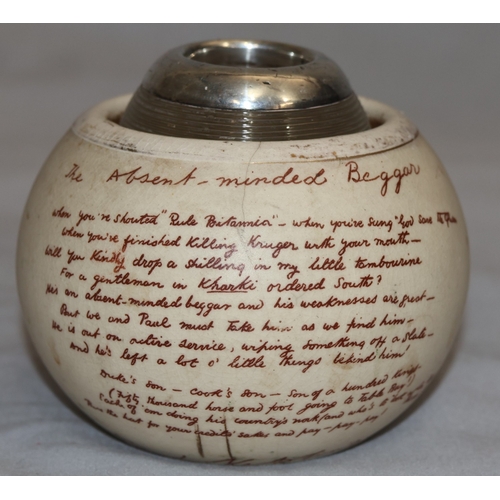 The Absent-minded Beggar
When you've shouted "Rule Britannia" — when you've sung "God save
When you've finished Killing Kruger with your mouth —
Will you Kindly drop a shilling in my little tambourine
For a gentleman in Kharki ordered South?
He's an absent-minded beggar and his weaknesses are great —
But we and Paul must take him as we find him —
He is out on active service, wiping something off a slate —
And he's left a lot o' little things behind him!
Duke's son — Cook's son — son of a hundred kings
(Fifty thousand horse and foot going to Table Bay!)
Each of 'em doing his country's work (and who's to
for your credit's sake and pay — pay — pay!